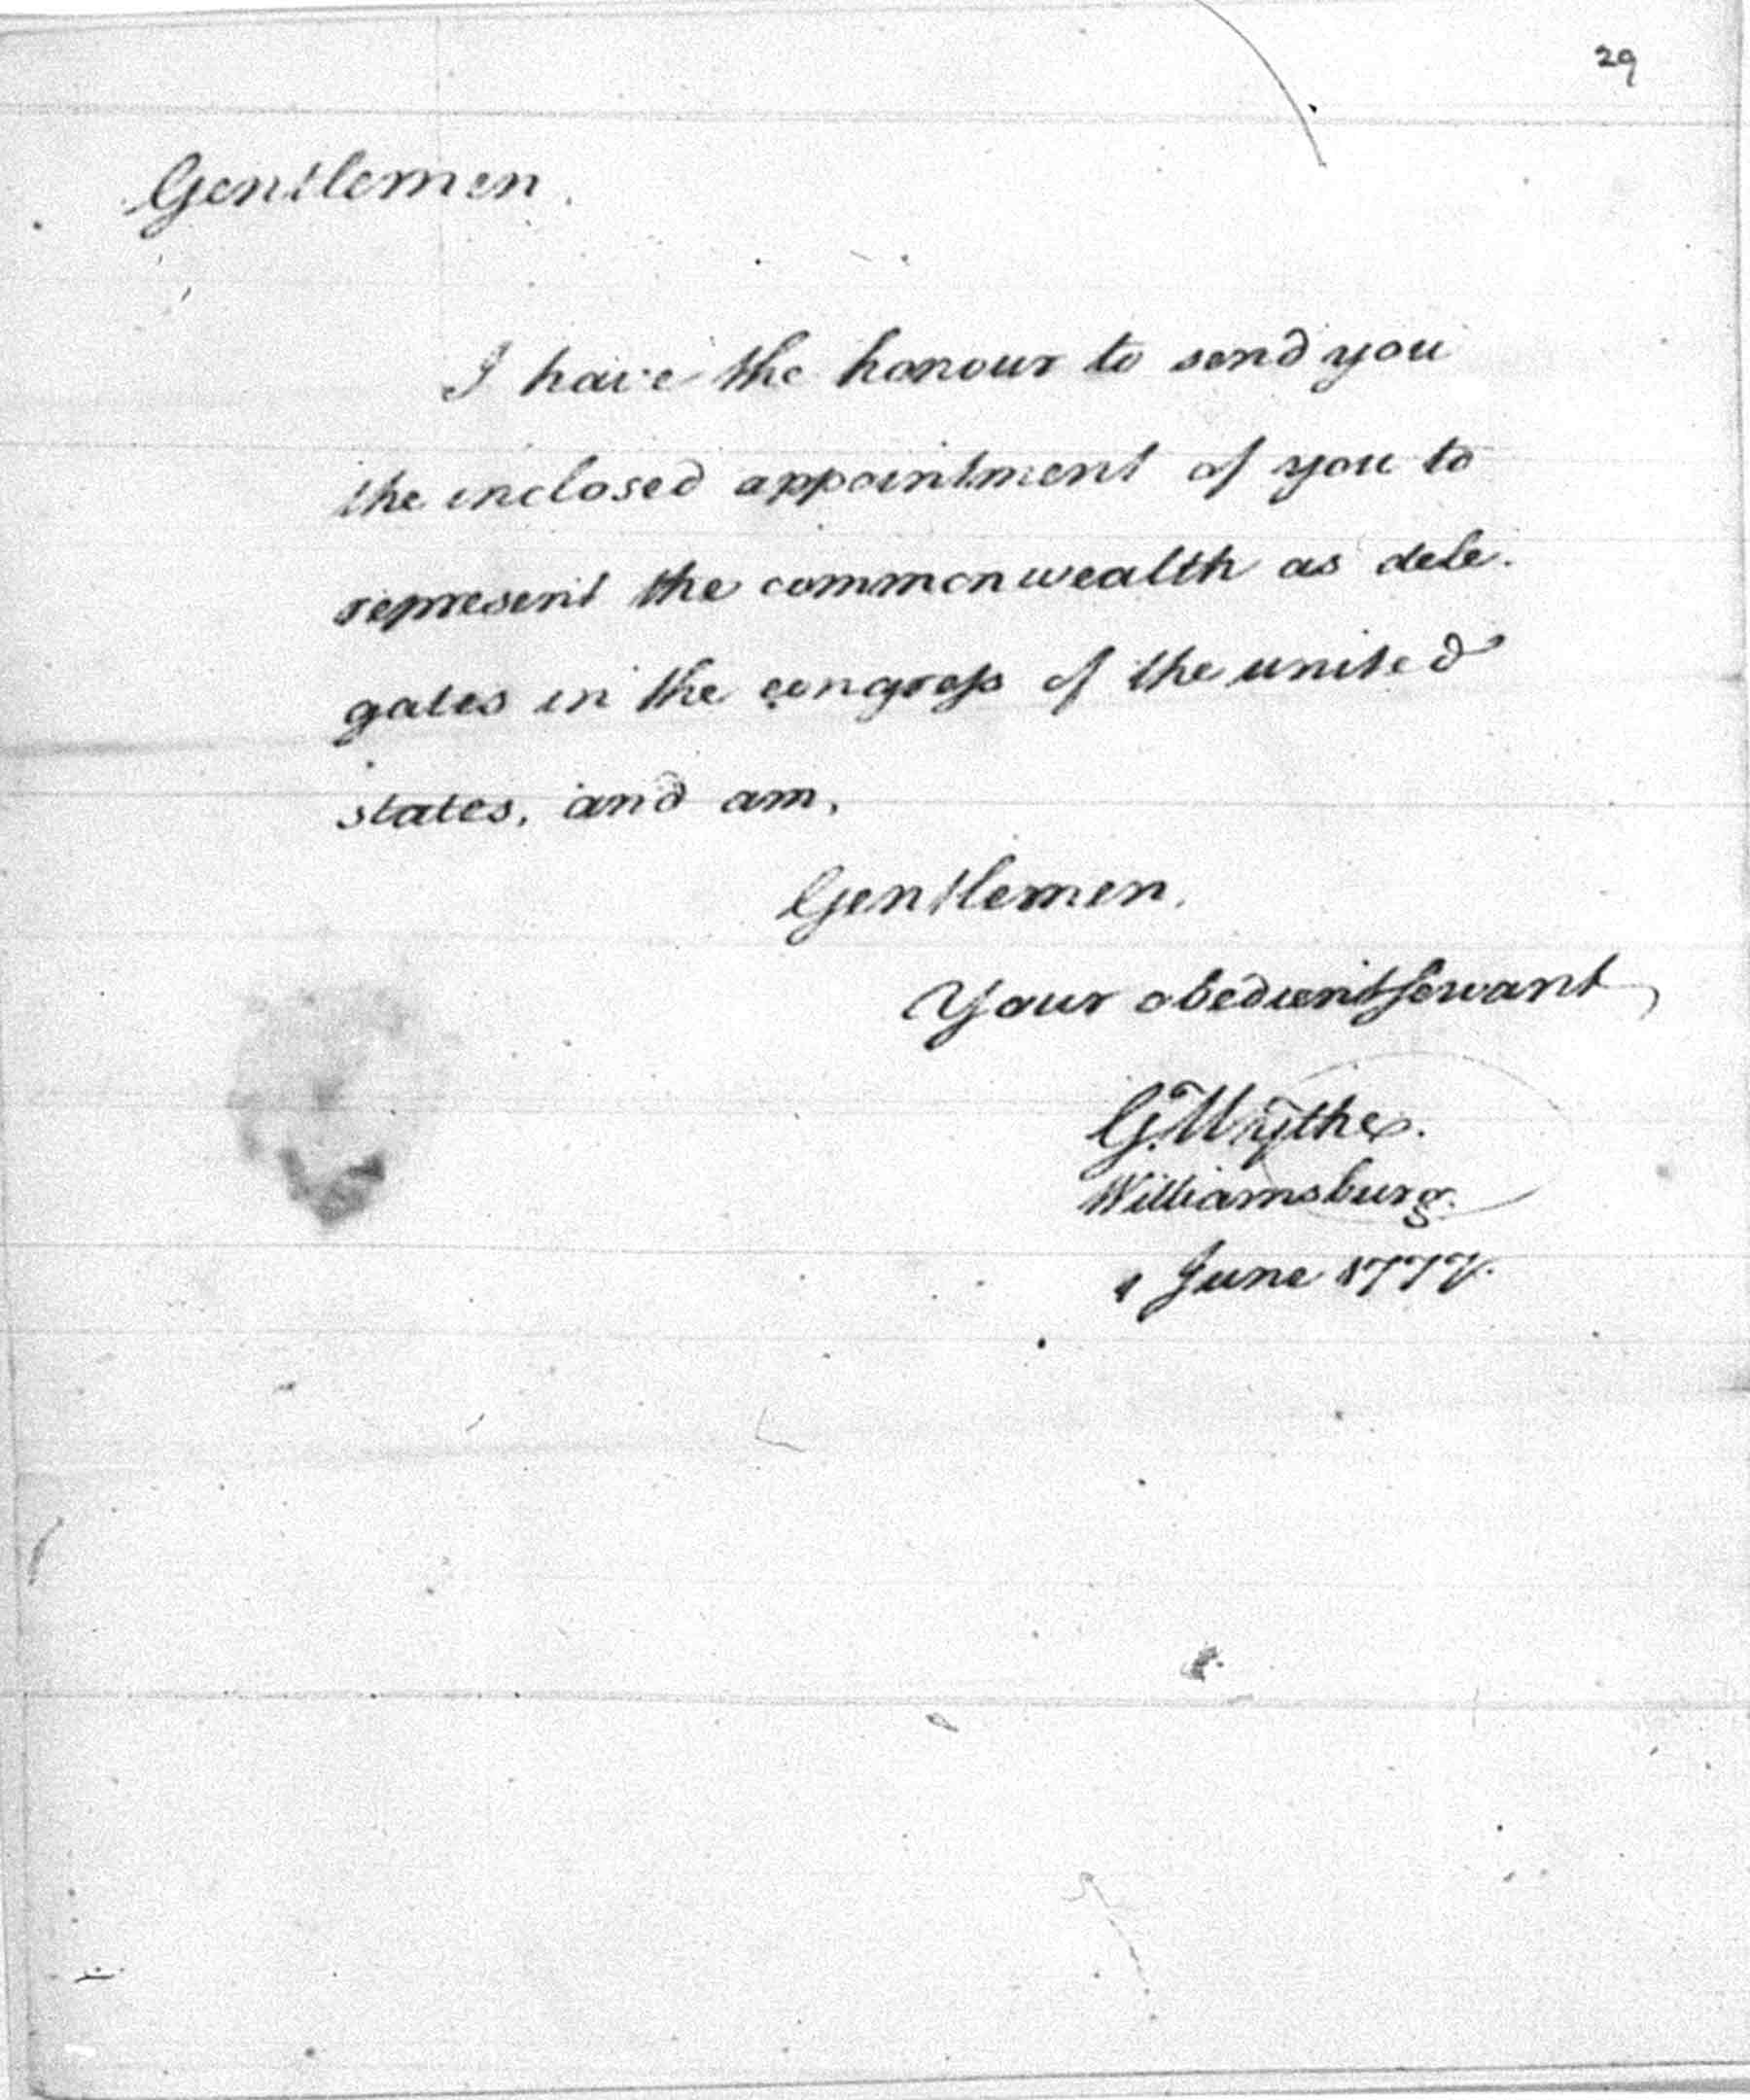 29
Gentlemen,
I have the honour to send you
the inclosed appointment of you to
represent the commonwealth as dele-
gates in the congress of the united
states, and am,
Gentlemen,
Your obedient servant,
G. Wythe.
Williamsburg.
June 1777.